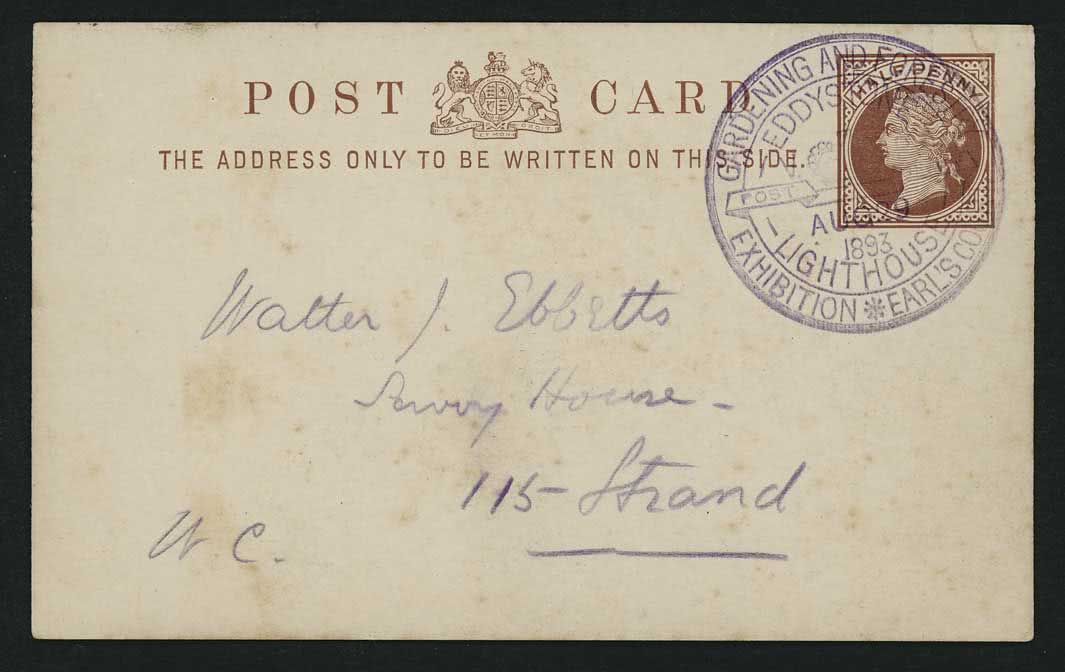 POST CARD
DIEU ET MON DROIT
THE ADDRESS ONLY TO BE WRITTEN ON THIS SIDE.
HALF PENNY
GARDENING AND
EDDYS
POST
AUG 29
1893
LIGHTHOUSE
EXHIBITION ✻ EARL'S CO
Walter J. Ebbetts
Savoy House -
115 Strand
W C.